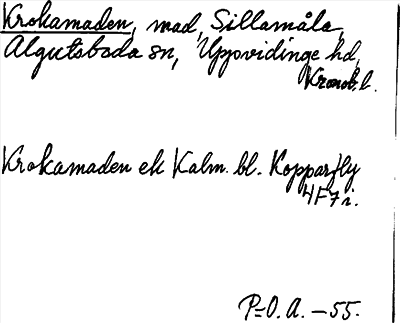 Krokamaden, mad, Sillamåla,
Algutsboda sn, Uppvidinge hd,
Kronob. l.
Krokamaden ek Kalm. bl. Kopparfly
4F7i.
P=O.A. – 55.